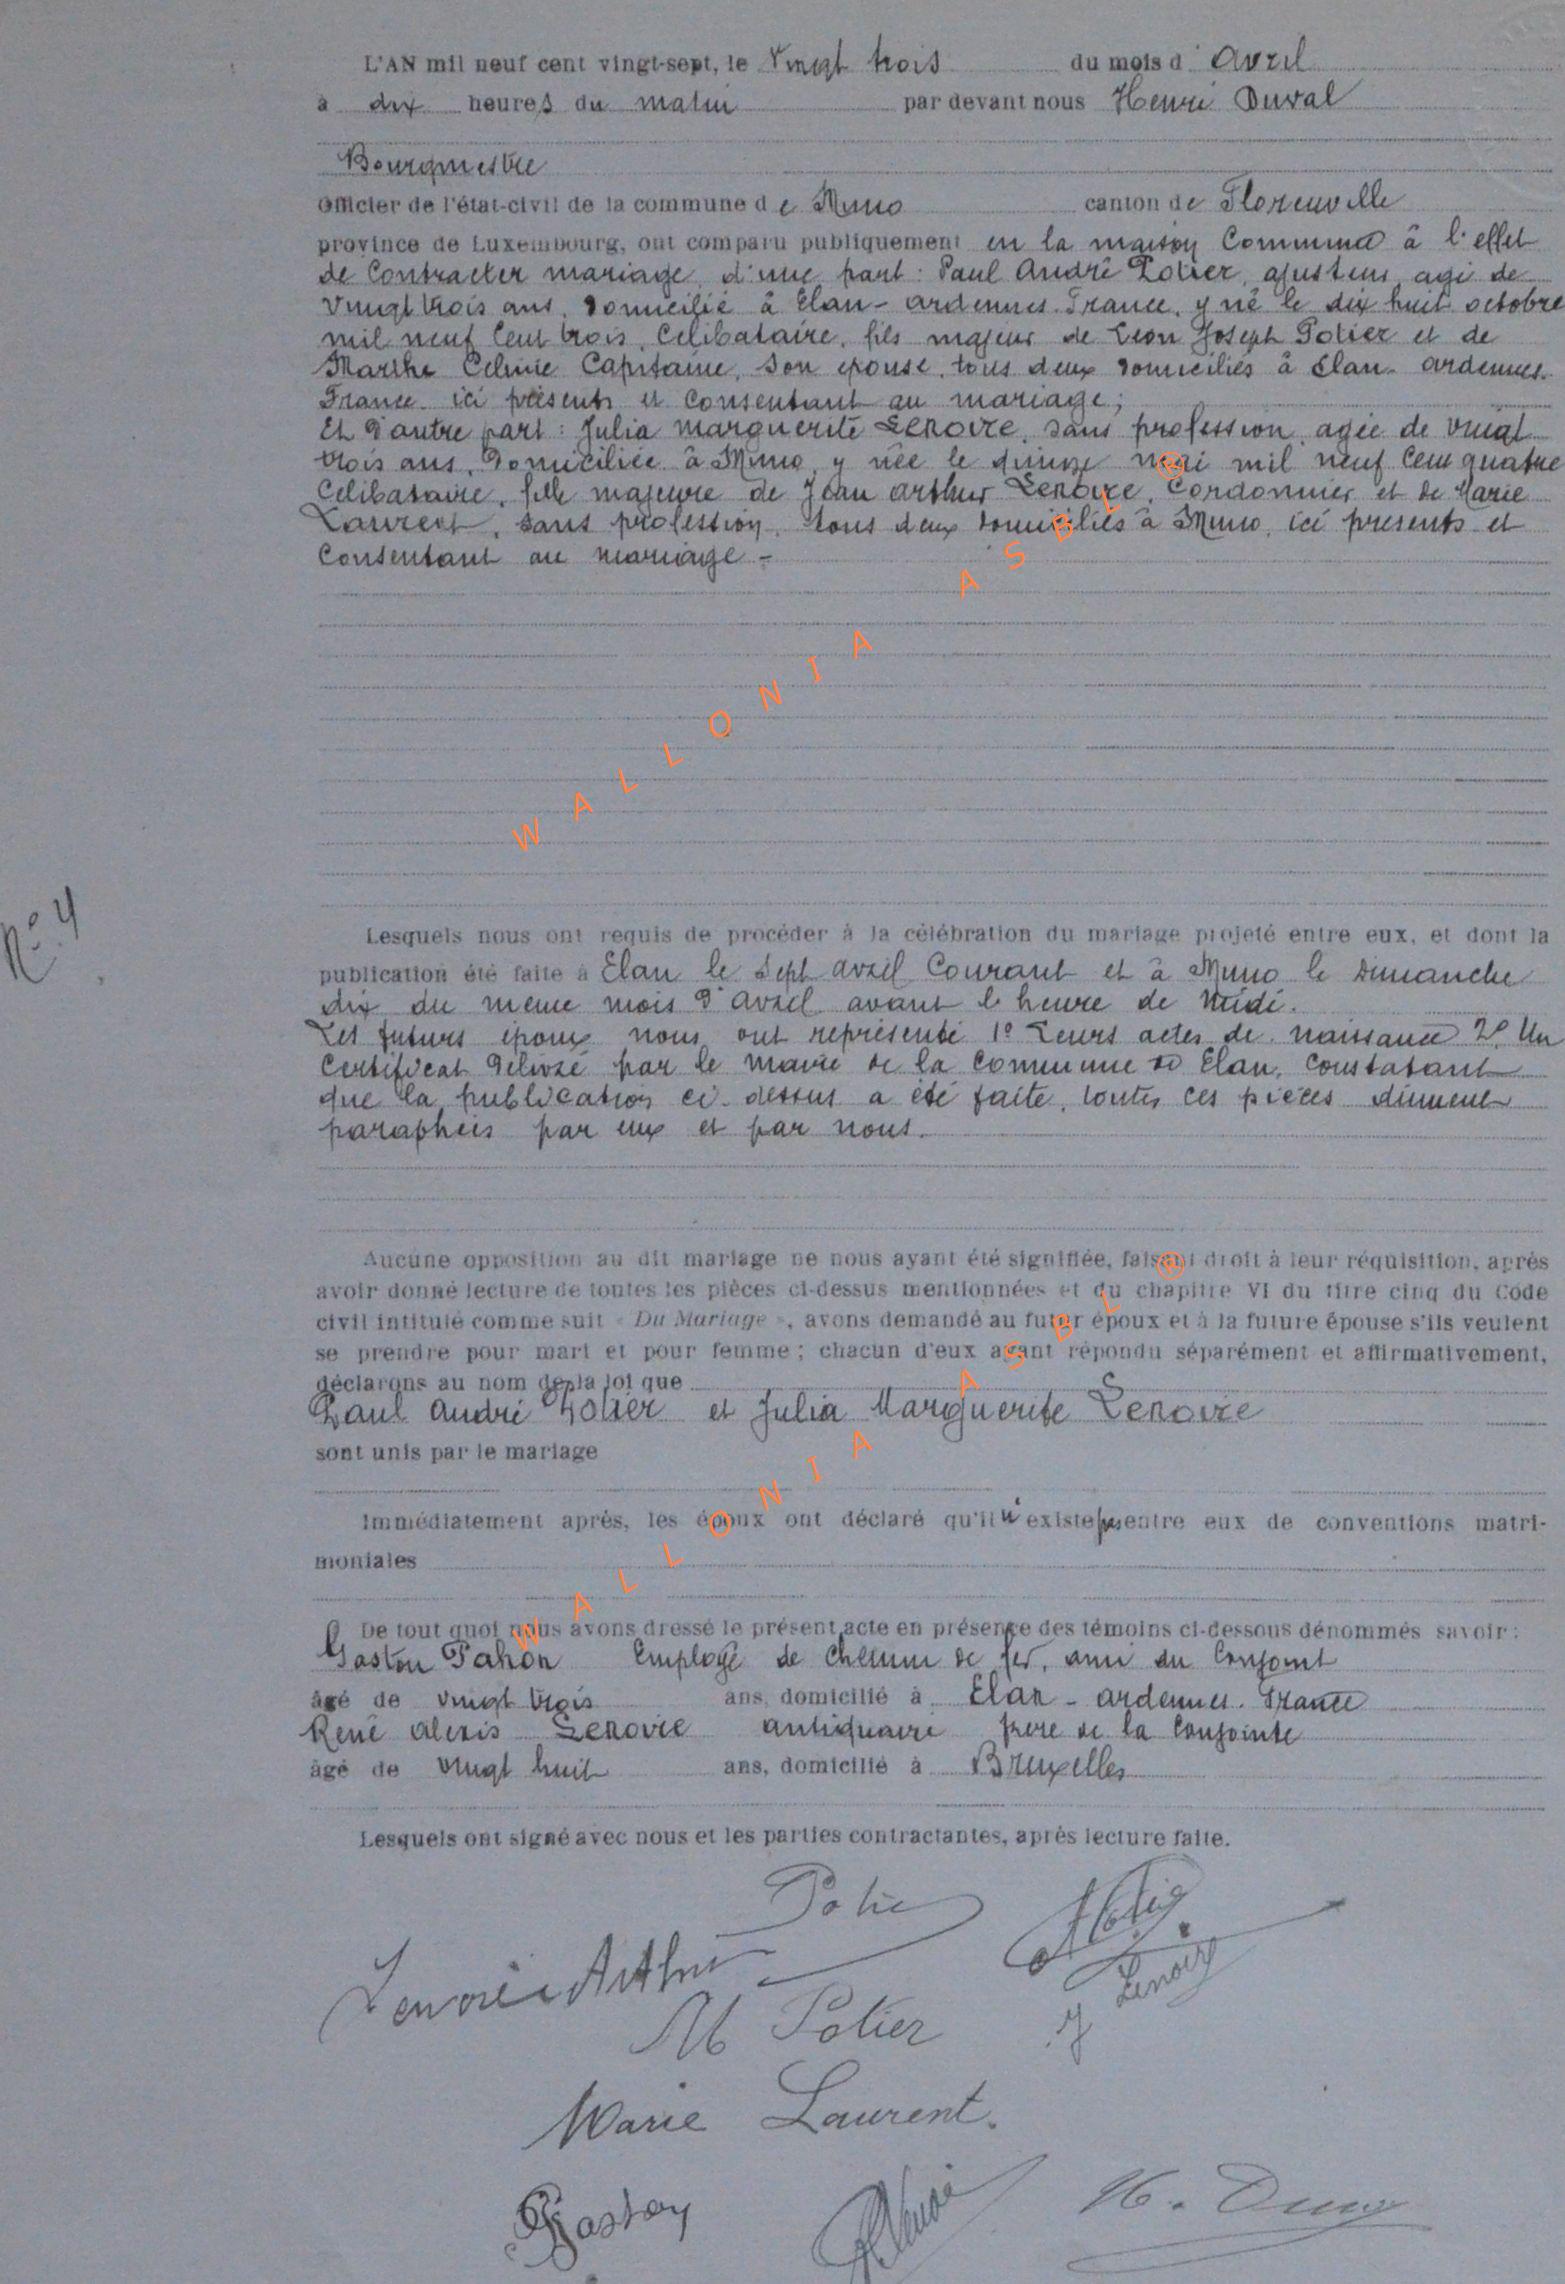 L'AN mil neuf cent vingt-sept, le vingt trois du mois d'avril
à dix heures du matin par devant nous Henri Duval
Bourgmestre
Officier de l'état-civil de la commune de Muno canton de Florenville
province de Luxembourg, ont comparu publiquement en la maison Commune à l'effet
de Contracter mariage, d'une part : Paul André Potier, ajusteur, agé de
vingt trois ans, domicilié à Elan - ardennes. France, y né le dix huit octobre
mil neuf cent trois, Célibataire, fils majeur de Léon Joseph Potier et de
Marthe Capitaine, son epouse, tous deux domiciliés à Elan - ardennes.
France. ici présents et consentant au mariage ;
Et d'autre part : Julia marguerite Lenoire, sans profession, agée de vingt
trois ans, domiciliée à Muno, y née le quinze mai mil neuf cent quatre
Célibataire, fille majeure de Jean arthur Lenoire, Cordonnier et de Marie
Laurent, sans profession, tous deux domiciliés à Muno, ici presents et
Consentant au mariage -
Lesquels nous ont requis de procéder à la célébration du mariage projeté entre eux, et dont la
publication été faite à Elan le sept avril Courant et à Muno le Dimanche
dix du meme mois d'avril avant l'heure de midi.
Les futurs époux nous ont représenté 1° Leurs actes de naissance 2° Un
Certificat délivré par le maire de la commune d'Elan, constatant
que la publication ci-dessus a été faite, toutes ces pièces dûment
paraphées par eux et par nous.
N° 4
Aucune opposition au dit mariage ne nous ayant été signifiée, faisant droit à leur réquisition, après
avoir donné lecture de toutes les pièces ci-dessus mentionnées et du chapitre VI du titre cinq du Code
civil intitulé comme suit « Du Mariage », avons demandé au futur époux et à la future épouse s'ils veulent
se prendre pour mari et pour femme ; chacun d'eux ayant répondu séparément et affirmativement,
déclarons au nom de la loi que
Paul André Potier et Julia Marguerite Lenoire
sont unis par le mariage
Immédiatement après, les époux ont déclaré qu'il n'existe pas entre eux de conventions matri-
moniales
De tout quoi nous avons dressé le présent acte en présence des témoins ci-dessous dénommés savoir :
Gaston Pahon Employé de chemin de fer, ami du Conjoint
âgé de vingt trois ans, domicilié à Elan - ardennes. France
René alexis Lenoire antiquaire frere de la Conjointe
âgé de vingt huit ans, domicilié à Bruxelles
Lesquels ont signé avec nous et les parties contractantes, après lecture faite.
Potier
Lenoire Arthur
J Lenoire
M Potier
Marie Laurent.
Gaston
H. Duval
WALLONIA ASBL ®
WALLONIA ASBL ®